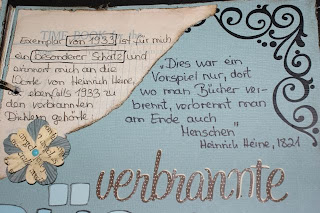 Exemplar von 1933 ist für mich
ein besonderer Schatz und
erinnert mich an die
Worte von Heinrich Heine,
der ebenfalls 1933 zu
den verbrannten
Dichtern gehörte.
„Dies war ein
Vorspiel nur, dort
wo man Bücher ver-
brennt, verbrennt man
am Ende auch
Menschen"
Heinrich Heine, 1821
verbrannte